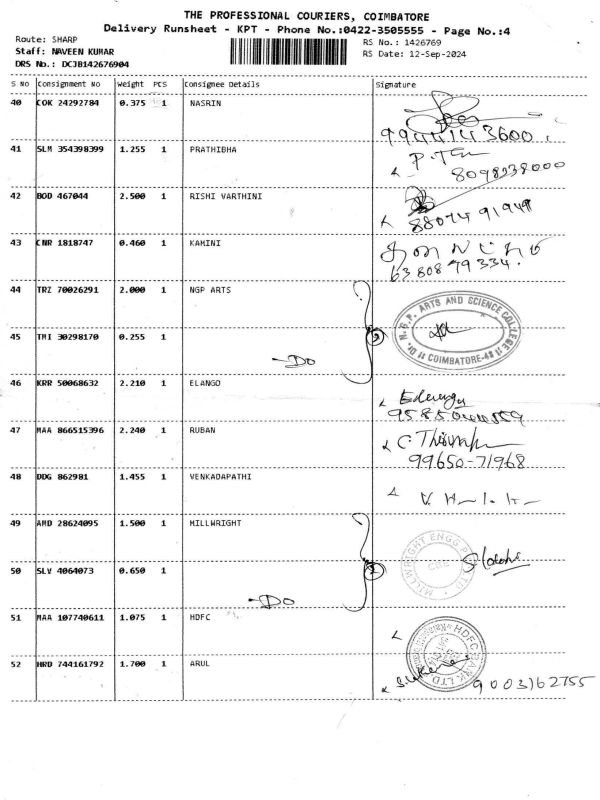 THE PROFESSIONAL COURIERS, COIMBATORE
Delivery Runsheet - KPT - Phone No.:0422-3505555 - Page No.:4
Route: SHARP
RS No.: 1426769
Staff: NAVEEN KUMAR
RS Date: 12-Sep-2024
DRS No.: DCJB142676904
S No Consignment No Weight PCS Consignee Details Signature
40 COK 24292784 0.375 1 NASRIN
41 SLM 354398399 1.255 1 PRATHIBHA
8098938000
42 BOD 467044 2.500 1 RISHI VARTHINI
43 CNR 1818747 0.460 1 KAMINI
63808 79334.
44 TRZ 70026291 2.000 1 NGP ARTS
Dr. N.G.P. ARTS AND SCIENCE COLLEGE
COIMBATORE-48
45 TMI 30298170 0.255 1
-Do
46 KRR 50068632 2.210 1 ELANGO
47 MAA 866515396 2.240 1 RUBAN
99650-71968
48 DDG 862981 1.455 1 VENKADAPATHI
49 AMD 28624095 1.500 1 MILLWRIGHT
MILLWRIGHT ENGG
CBE
50 SLV 4064073 0.650 1
2
-Do
51 MAA 107740611 1.075 1 HDFC
HDFC BANK LTD
52 HRD 744161792 1.700 1 ARUL
9003162755